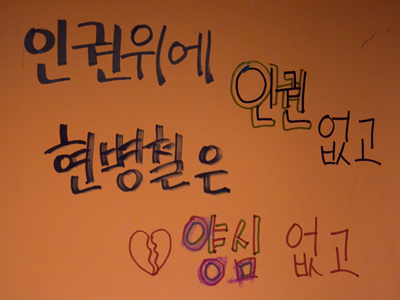 인권위에
인권 없고
현병철은
양심 없고